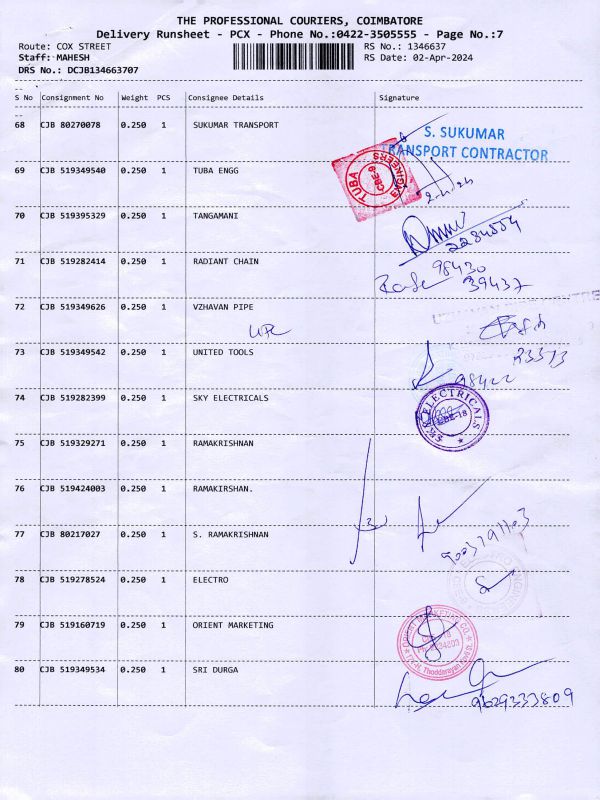 THE PROFESSIONAL COURIERS, COIMBATORE
Delivery Runsheet - PCX - Phone No.:0422-3505555 - Page No.:7
Route: COX STREET RS No.: 1346637
Staff: MAHESH RS Date: 02-Apr-2024
DRS No.: DCJB134663707
S No Consignment No Weight PCS Consignee Details Signature
68 CJB 80270078 0.250 1 SUKUMAR TRANSPORT
S. SUKUMAR
TRANSPORT CONTRACTOR
69 CJB 519349540 0.250 1 TUBA ENGG
TUBA ENGINEERS
CBE-9
2-4-24
70 CJB 519395329 0.250 1 TANGAMANI
2284554
71 CJB 519282414 0.250 1 RADIANT CHAIN
98430
39437
72 CJB 519349626 0.250 1 VZHAVAN PIPE
73 CJB 519349542 0.250 1 UNITED TOOLS
98422
R3513
74 CJB 519282399 0.250 1 SKY ELECTRICALS
ELECTRICALS
75 CJB 519329271 0.250 1 RAMAKRISHNAN
76 CJB 519424003 0.250 1 RAMAKIRSHAN.
77 CJB 80217027 0.250 1 S. RAMAKRISHNAN
9003791103
78 CJB 519278524 0.250 1 ELECTRO
79 CJB 519160719 0.250 1 ORIENT MARKETING
ORIENT MARKETING CO.
80 CJB 519349534 0.250 1 SRI DURGA
9629333809